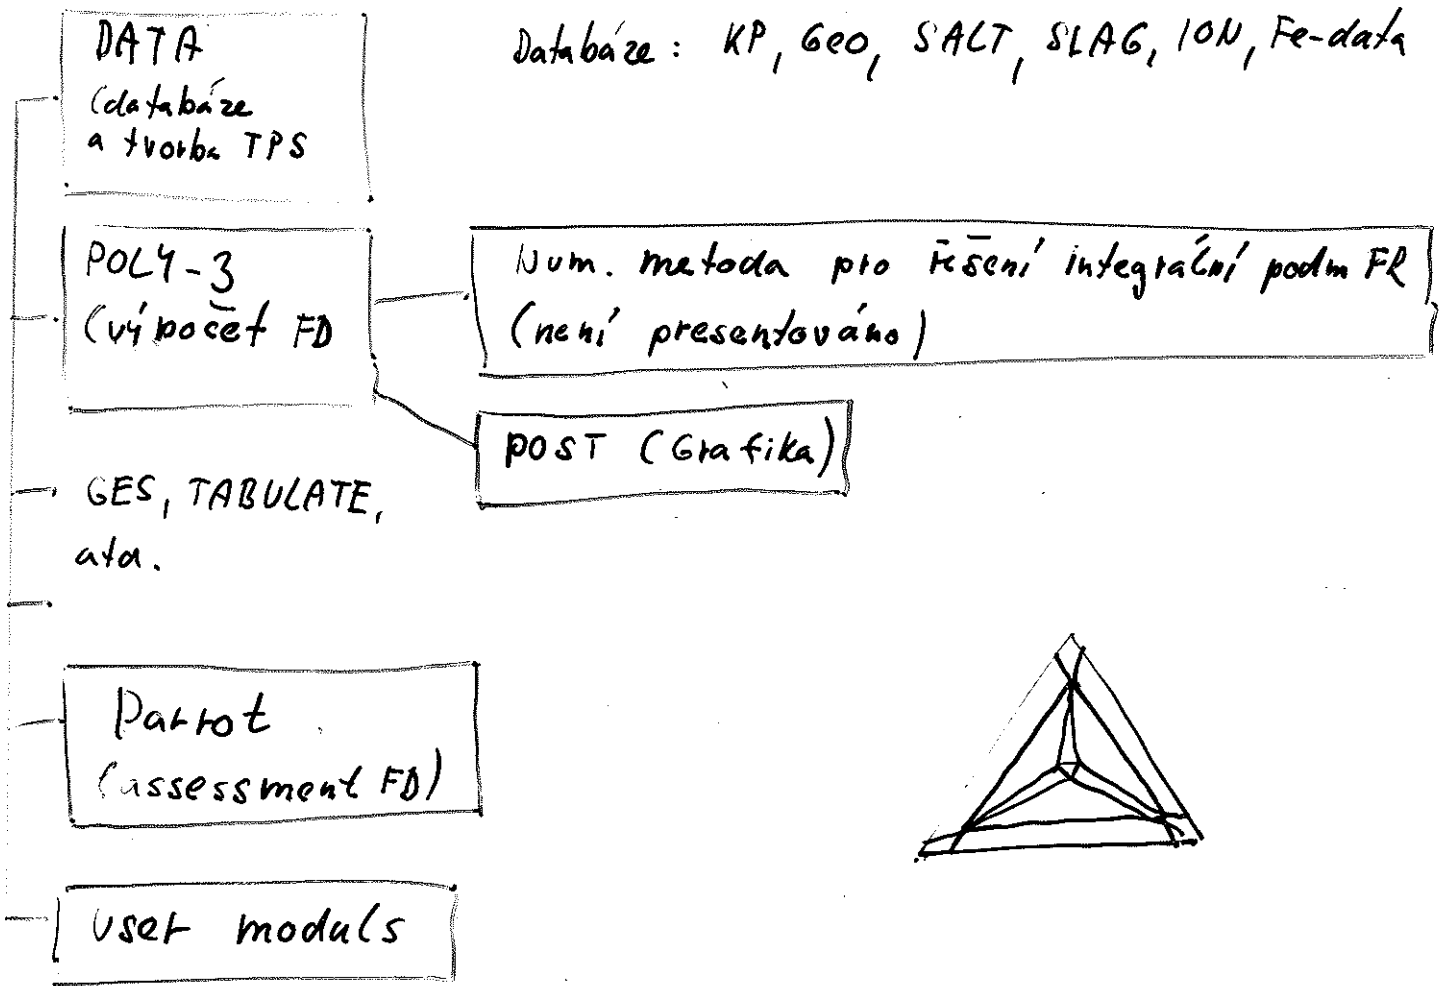 DATA
(databáze
a tvorba TPS
Databáze: KP, Geo, SALT, SLAG, ION, Fe-data
POLY-3
(výpočet FD
Num. metoda pro řešení integrální podm FR
(není presentováno)
POST (Grafika)
GES, TABULATE,
atd.
Parrot
(assessment FD)
user moduls